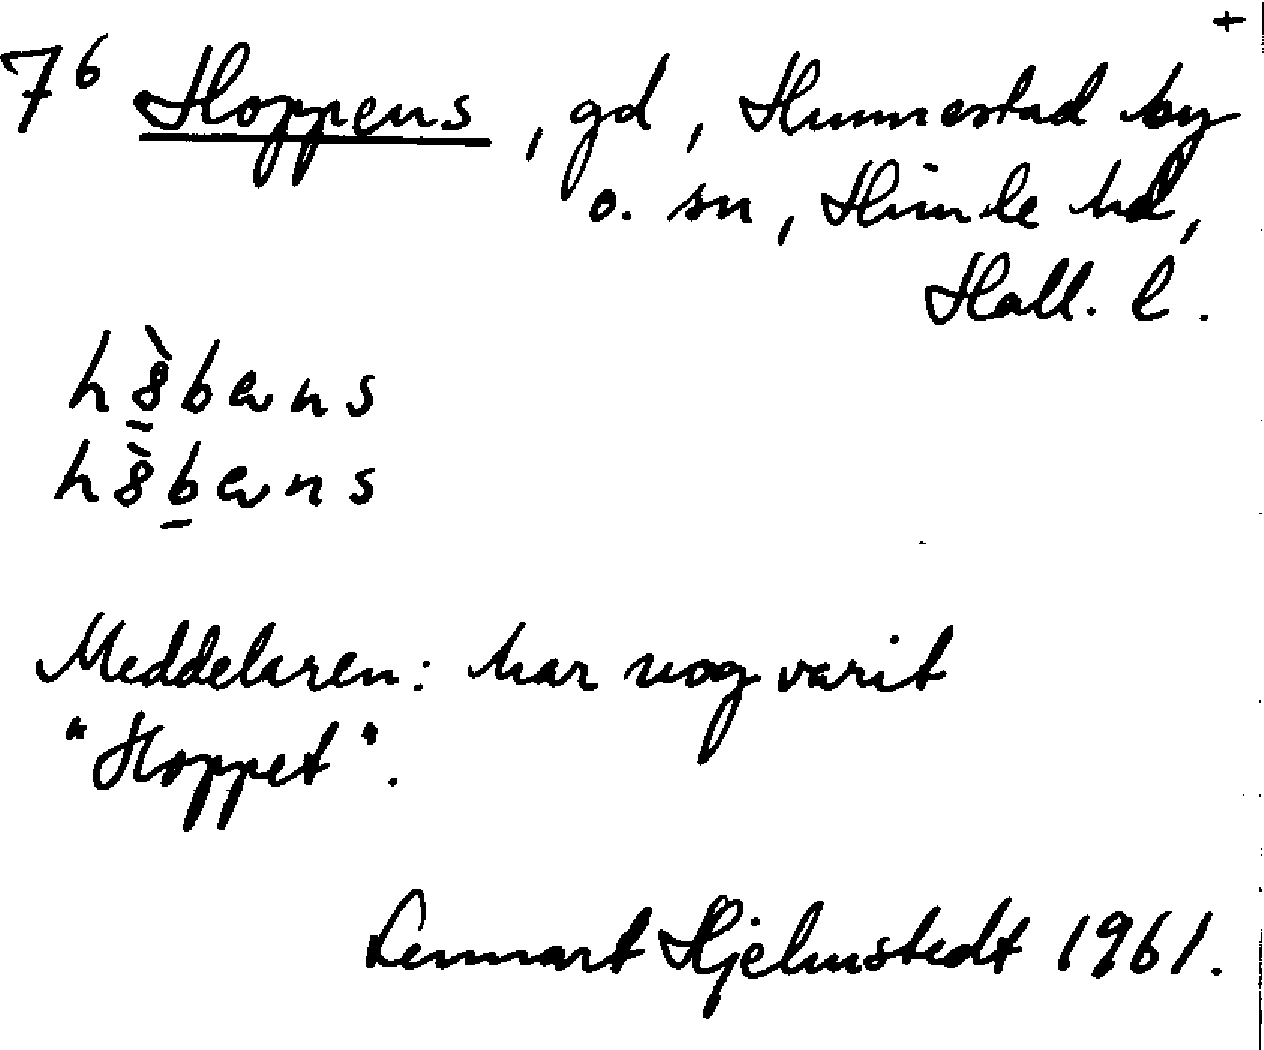 +
7⁶ Hoppens, gd, Hunnestad by
o. sn, Himle hd,
Hall. l.
h8̠̀bɐns
h8̀b̠ɐns
Meddelaren: har nog varit
"Hoppet".
Lennart Hjelmstedt 1961.